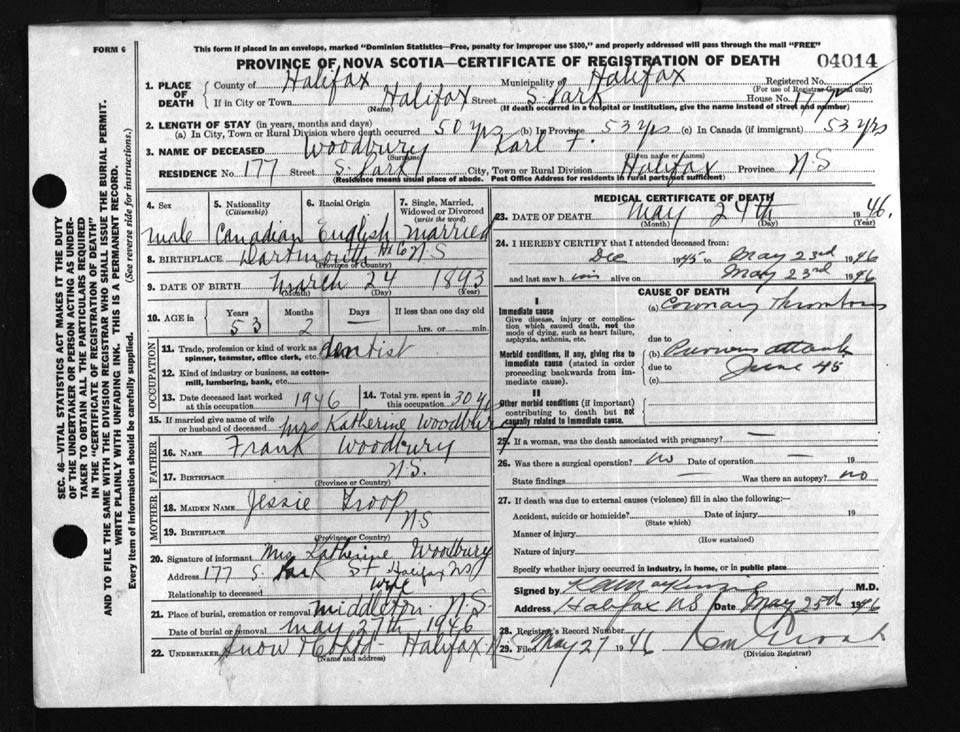 FORM 6
This form if placed in an envelope, marked "Dominion Statistics—Free, penalty for improper use $300," and properly addressed will pass through the mail "FREE"
PROVINCE OF NOVA SCOTIA—CERTIFICATE OF REGISTRATION OF DEATH 04014
1. PLACE OF DEATH
County of Halifax Municipality of Halifax Registered No.
(For use of Registrar-General only)
If in City or Town Halifax Street S Park House No. 177
(Name) (If death occurred in a hospital or institution, give the name instead of street and number)
2. LENGTH OF STAY (in years, months and days)
(a) In City, Town or Rural Division where death occurred 50 yrs (b) In Province 53 yrs (c) In Canada (if immigrant) 53 yrs
3. NAME OF DECEASED Woodbury Karl F.
(Surname) (Given name or names)
RESIDENCE No. 177 Street S. Park City, Town or Rural Division Halifax Province N.S
(Residence means usual place of abode. Post Office Address for residents in rural parts not sufficient)
4. Sex
male
5. Nationality
(Citizenship)
Canadian
6. Racial Origin
English
7. Single, Married, Widowed or Divorced
(write the word)
Married
8. BIRTHPLACE Dartmouth Hx Co N.S
(Province or Country)
9. DATE OF BIRTH March 24 1893
(Month) (Day) (Year)
10. AGE in Years Months Days If less than one day old
53 2 — hrs. or min.
OCCUPATION
11. Trade, profession or kind of work as spinner, teamster, office clerk, etc. dentist
12. Kind of industry or business, as cotton-mill, lumbering, bank, etc.
13. Date deceased last worked at this occupation 1946
14. Total yrs. spent in this occupation 30 yrs
15. If married give name of wife or husband of deceased Mrs Katherine Woodbury
FATHER
16. NAME Frank Woodbury
17. BIRTHPLACE N.S.
(Province or Country)
MOTHER
18. MAIDEN NAME Jessie Troop
19. BIRTHPLACE N S
(Province or Country)
20. Signature of informant Mrs Katherine Woodbury
Address 177 S. Park St Halifax NS
Relationship to deceased Wife
21. Place of burial, cremation or removal Middleton N.S.
Date of burial or removal May 27th 1946
22. UNDERTAKER Snow Halifax N.S
(Name and address)
MEDICAL CERTIFICATE OF DEATH
23. DATE OF DEATH May 24th 1946.
(Month) (Day) (Year)
24. I HEREBY CERTIFY that I attended deceased from:
Dec 1945 to May 23rd 1946
and last saw him alive on May 23rd 1946
CAUSE OF DEATH
I
Immediate cause
Give disease, injury or complication which caused death, not the mode of dying, such as heart failure, asphyxia, asthenia, etc.
(a) Coronary Thrombosis
due to
Morbid conditions, if any, giving rise to immediate cause (stated in order proceeding backwards from immediate cause).
(b) Previous attack
due to June 45
(c)
II
Other morbid conditions (if important) contributing to death but not causally related to immediate cause.
25. If a woman, was the death associated with pregnancy? —
26. Was there a surgical operation? No Date of operation — 19
State findings — Was there an autopsy? no
27. If death was due to external causes (violence) fill in also the following:—
Accident, suicide or homicide? Date of injury 19
(State which)
Manner of injury
(How sustained)
Nature of injury
Specify whether injury occurred in industry, in home, or in public place
Signed by M.D.
Address Halifax N.S Date May 25th 1946
28. Registrar's Record Number
29. Filed May 27 1946
(Division Registrar)
SEC. 46—VITAL STATISTICS ACT MAKES IT THE DUTY
OF THE UNDERTAKER OR PERSON ACTING AS UNDER-
TAKER TO OBTAIN ALL THE PARTICULARS REQUIRED
IN THE "CERTIFICATE OF REGISTRATION OF DEATH"
AND TO FILE THE SAME WITH THE DIVISION REGISTRAR WHO SHALL ISSUE THE BURIAL PERMIT.
WRITE PLAINLY WITH UNFADING INK. THIS IS A PERMANENT RECORD.
Every item of information should be carefully supplied. (See reverse side for instructions.)